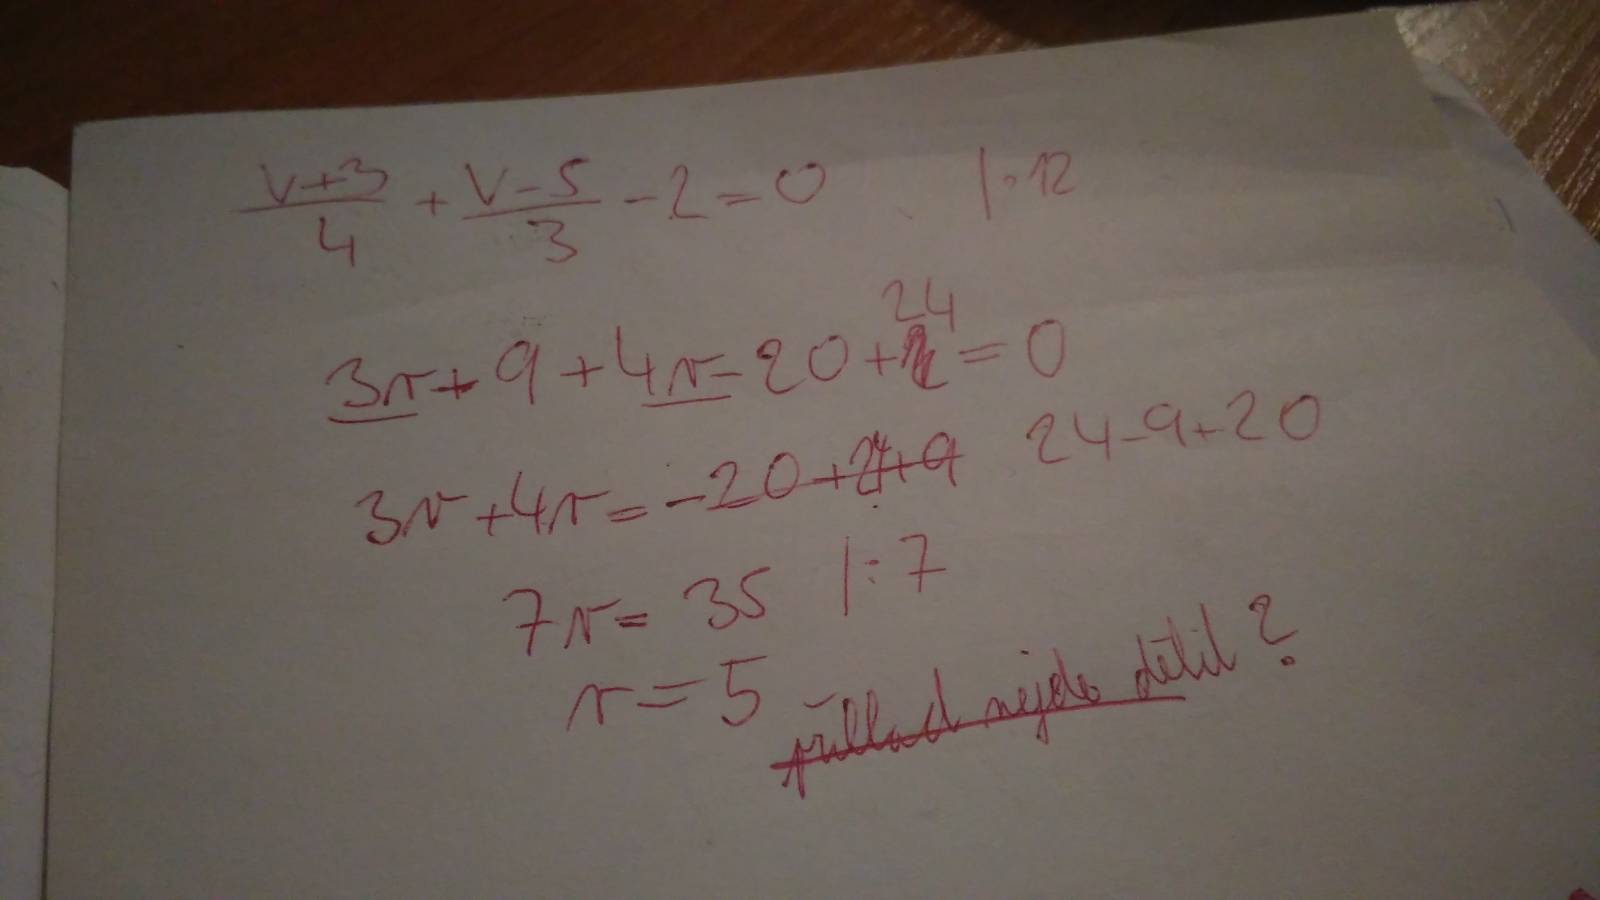 v+3/4 + v-5/3 - 2 = 0 |·12
3v + 9 + 4v - 20 + 24 = 0
3v + 4v = -20+24+9 24-9+20
7v = 35 |:7
v = 5
příklad nejde dělit?